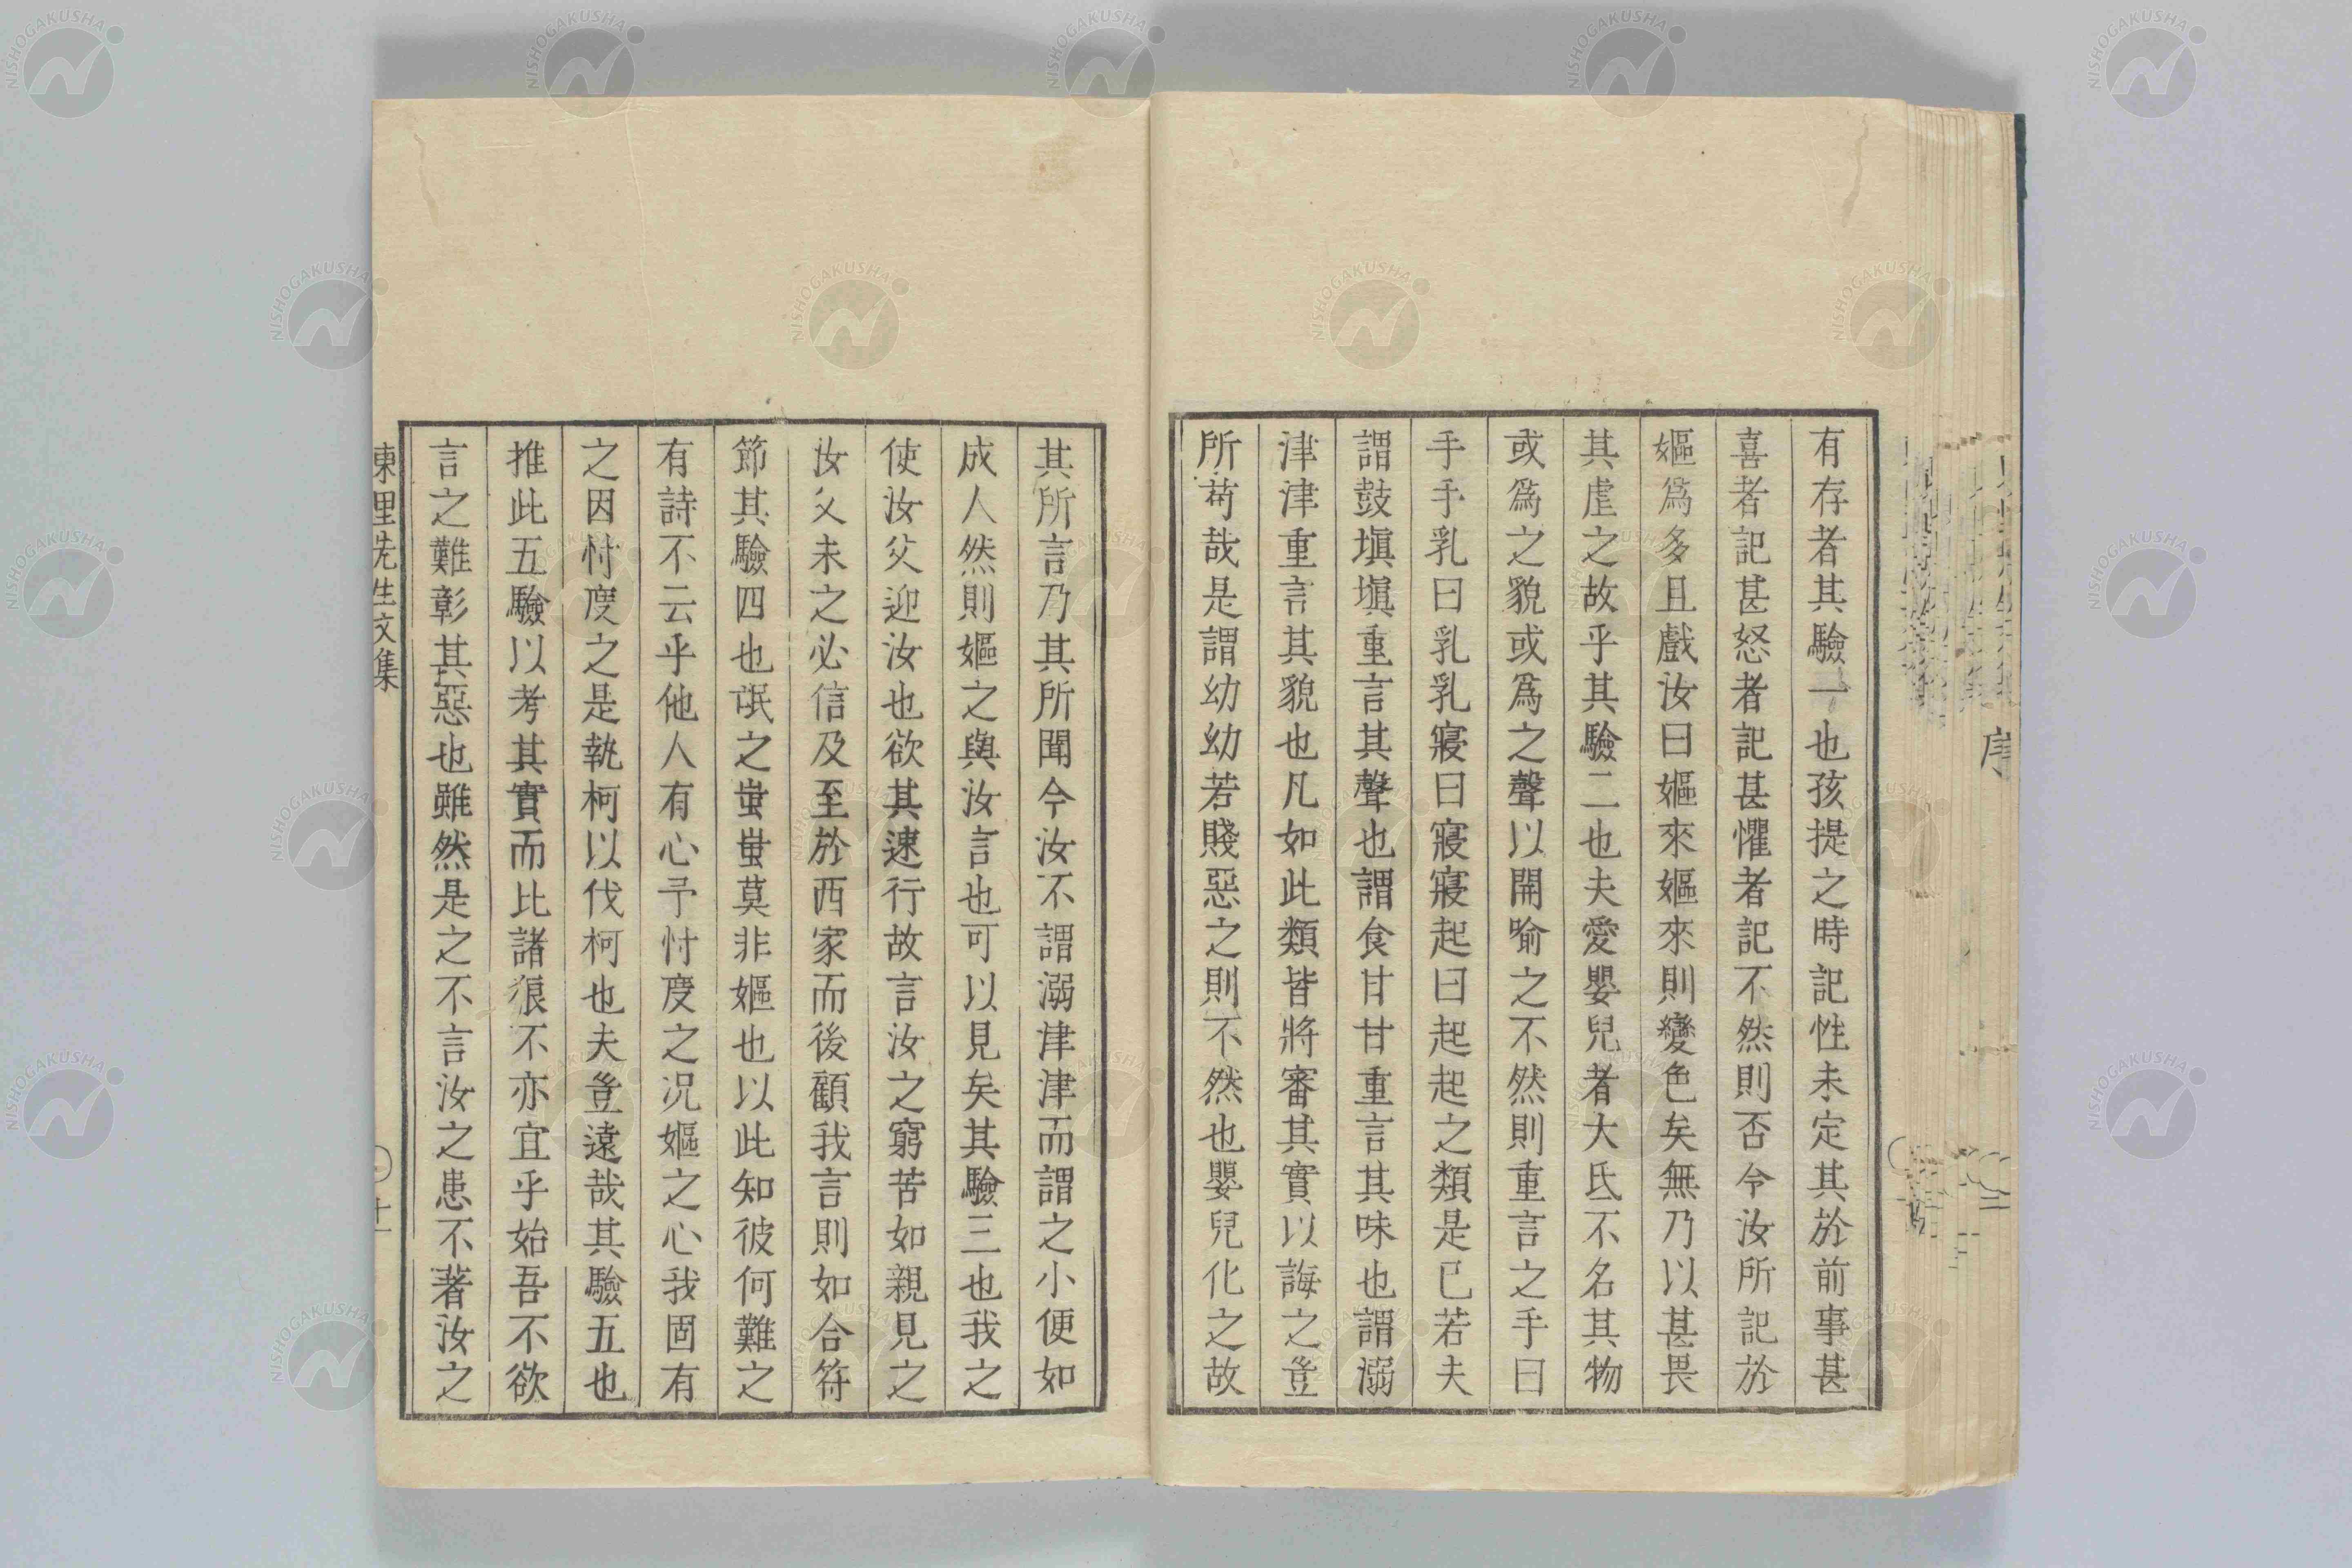 有存者其驗一也孩提之時記性未定其於前事甚
喜者記甚怒者記甚懼者記不然則否今汝所記於
嫗為多且戲汝曰嫗來嫗來則變色矣無乃以甚畏
其虐之故乎其驗二也夫愛嬰兒者大氐不名其物
或為之貌或為之聲以開喻之不然則重言之手曰
手手乳曰乳乳寢曰寢寢起曰起起之類是已若夫
謂鼓塡塡重言其聲也謂食甘甘重言其味也謂溺
津津重言其貌也凡如此類皆將審其實以誨之豈
所苟哉是謂幼幼若賤惡之則不然也嬰兒化之故
其所言乃其所聞今汝不謂溺津津而謂之小便如
成人然則嫗之與汝言也可以見矣其驗三也我之
使汝父迎汝也欲其速行故言汝之窮苦如親見之
汝父未之必信及至於西家而後顧我言則如合符
節其驗四也氓之蚩蚩莫非嫗也以此知彼何難之
有詩不云乎他人有心予忖度之况嫗之心我固有
之因忖度之是執柯以伐柯也夫豈遠哉其驗五也
推此五驗以考其實而比諸狼不亦宜乎始吾不欲
言之難彰其惡也雖然是之不言汝之患不著汝之
東里先生文集
十一
NISHOGAKUSHA